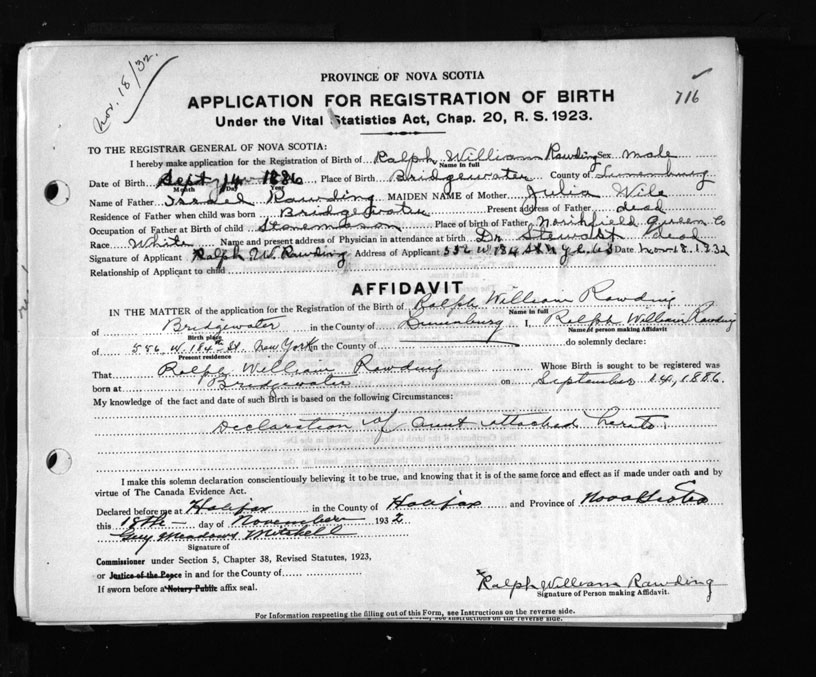 Nov. 18/32.
716
PROVINCE OF NOVA SCOTIA
APPLICATION FOR REGISTRATION OF BIRTH
Under the Vital Statistics Act, Chap. 20, R. S. 1923.
TO THE REGISTRAR GENERAL OF NOVA SCOTIA:
I hereby make application for the Registration of Birth of Ralph William Rawding Sex male
Name in full
Date of Birth Sept 14 1886 Place of Birth Bridgewater County of Lunenburg
Month Day Year
Name of Father Israel Rawding MAIDEN NAME of Mother Julia Wile
Residence of Father when child was born Bridgewater Present address of Father dead
Occupation of Father at Birth of child Stonemason Place of birth of Father Northfield Queen Co
Race White Name and present address of Physician in attendance at birth Dr Stewart dead
Signature of Applicant Ralph W. Rawding Address of Applicant W 184 St N.Y. Date Nov 18. 1932
Relationship of Applicant to child
AFFIDAVIT
IN THE MATTER of the application for the Registration of the Birth of Ralph William Rawding
Name in full
of Bridgewater in the County of Lunenburg I, Ralph William Rawding
Birth place Name of person making Affidavit
of 556 W. 184th St. New York in the County of do solemnly declare:
Present residence
That Ralph William Rawding Whose Birth is sought to be registered was
born at Bridgewater on September 14, 1886.
My knowledge of the fact and date of such Birth is based on the following Circumstances:
Declaration of Aunt attached hereto.
I make this solemn declaration conscientiously believing it to be true, and knowing that it is of the same force and effect as if made under oath and by
virtue of The Canada Evidence Act.
Declared before me at Halifax in the County of Halifax and Province of Nova Scotia
this 18th day of November 1932
Guy Meadows Mitchell
Signature of
Commissioner under Section 5, Chapter 38, Revised Statutes, 1923,
or Justice of the Peace in and for the County of
If sworn before a Notary Public affix seal.
x Ralph William Rawding
Signature of Person making Affidavit.
For Information respecting the filling out of this Form, see Instructions on the reverse side.
see Instructions on the reverse side.